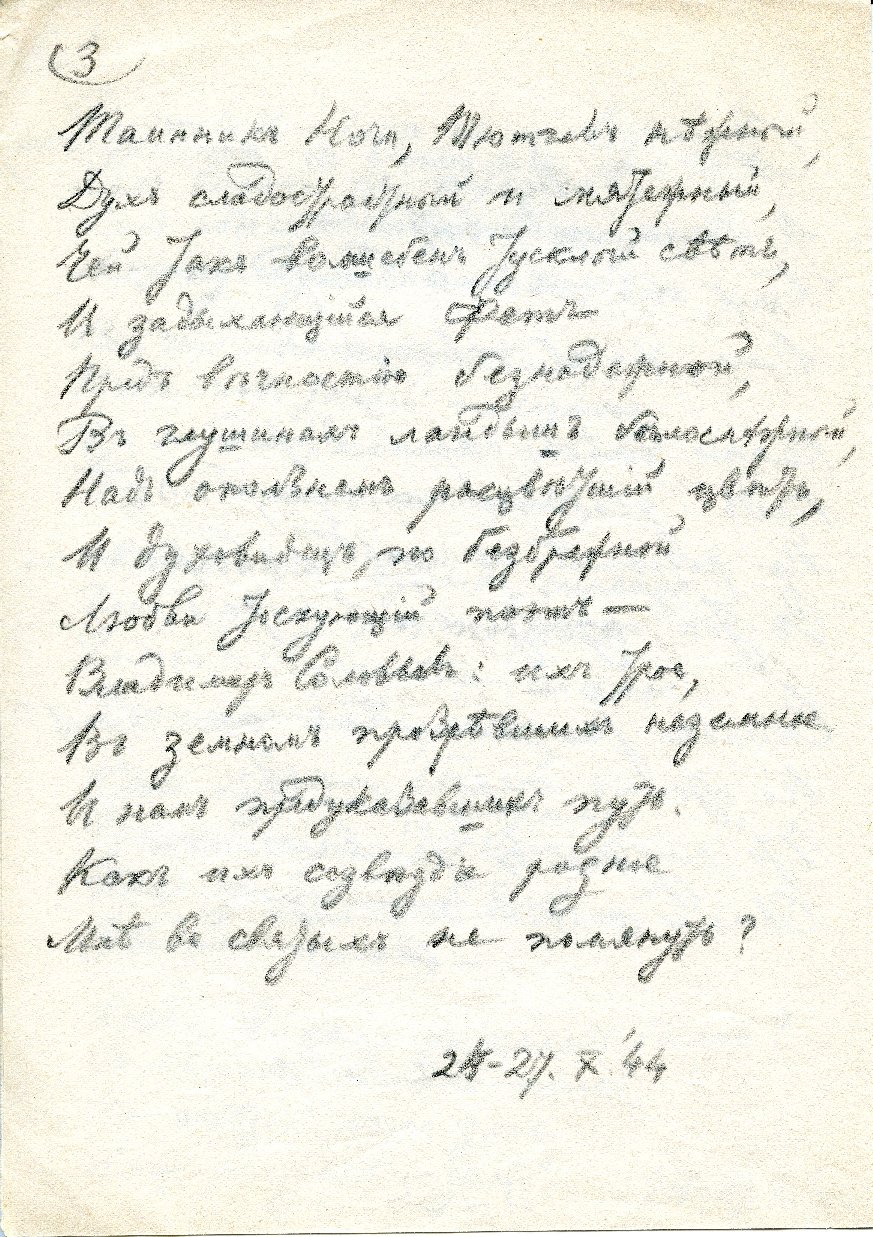 3
Таинникъ Ночи, Тютчевъ нѣжный,
Духъ сладострастный и мятежный,
Чей такъ волшебенъ тусклый свѣтъ,
И задыхающійся Фетъ
Предъ вѣчностію безнадежной,
Въ глушинахъ ландышъ бѣлоснѣжной,
Надъ оползнемъ расцвѣтшій цвѣтъ,
И духовидецъ, по безбрежной
Любви тоскующій поэтъ —
Владимиръ Соловьевъ: ихъ трое,
Въ земномъ прозрѣвшихъ неземное
И намъ предуказавшихъ путь.
Какъ ихъ созвѣздіе родное
Мнѣ во святыхъ не помянуть?
-27. X '44